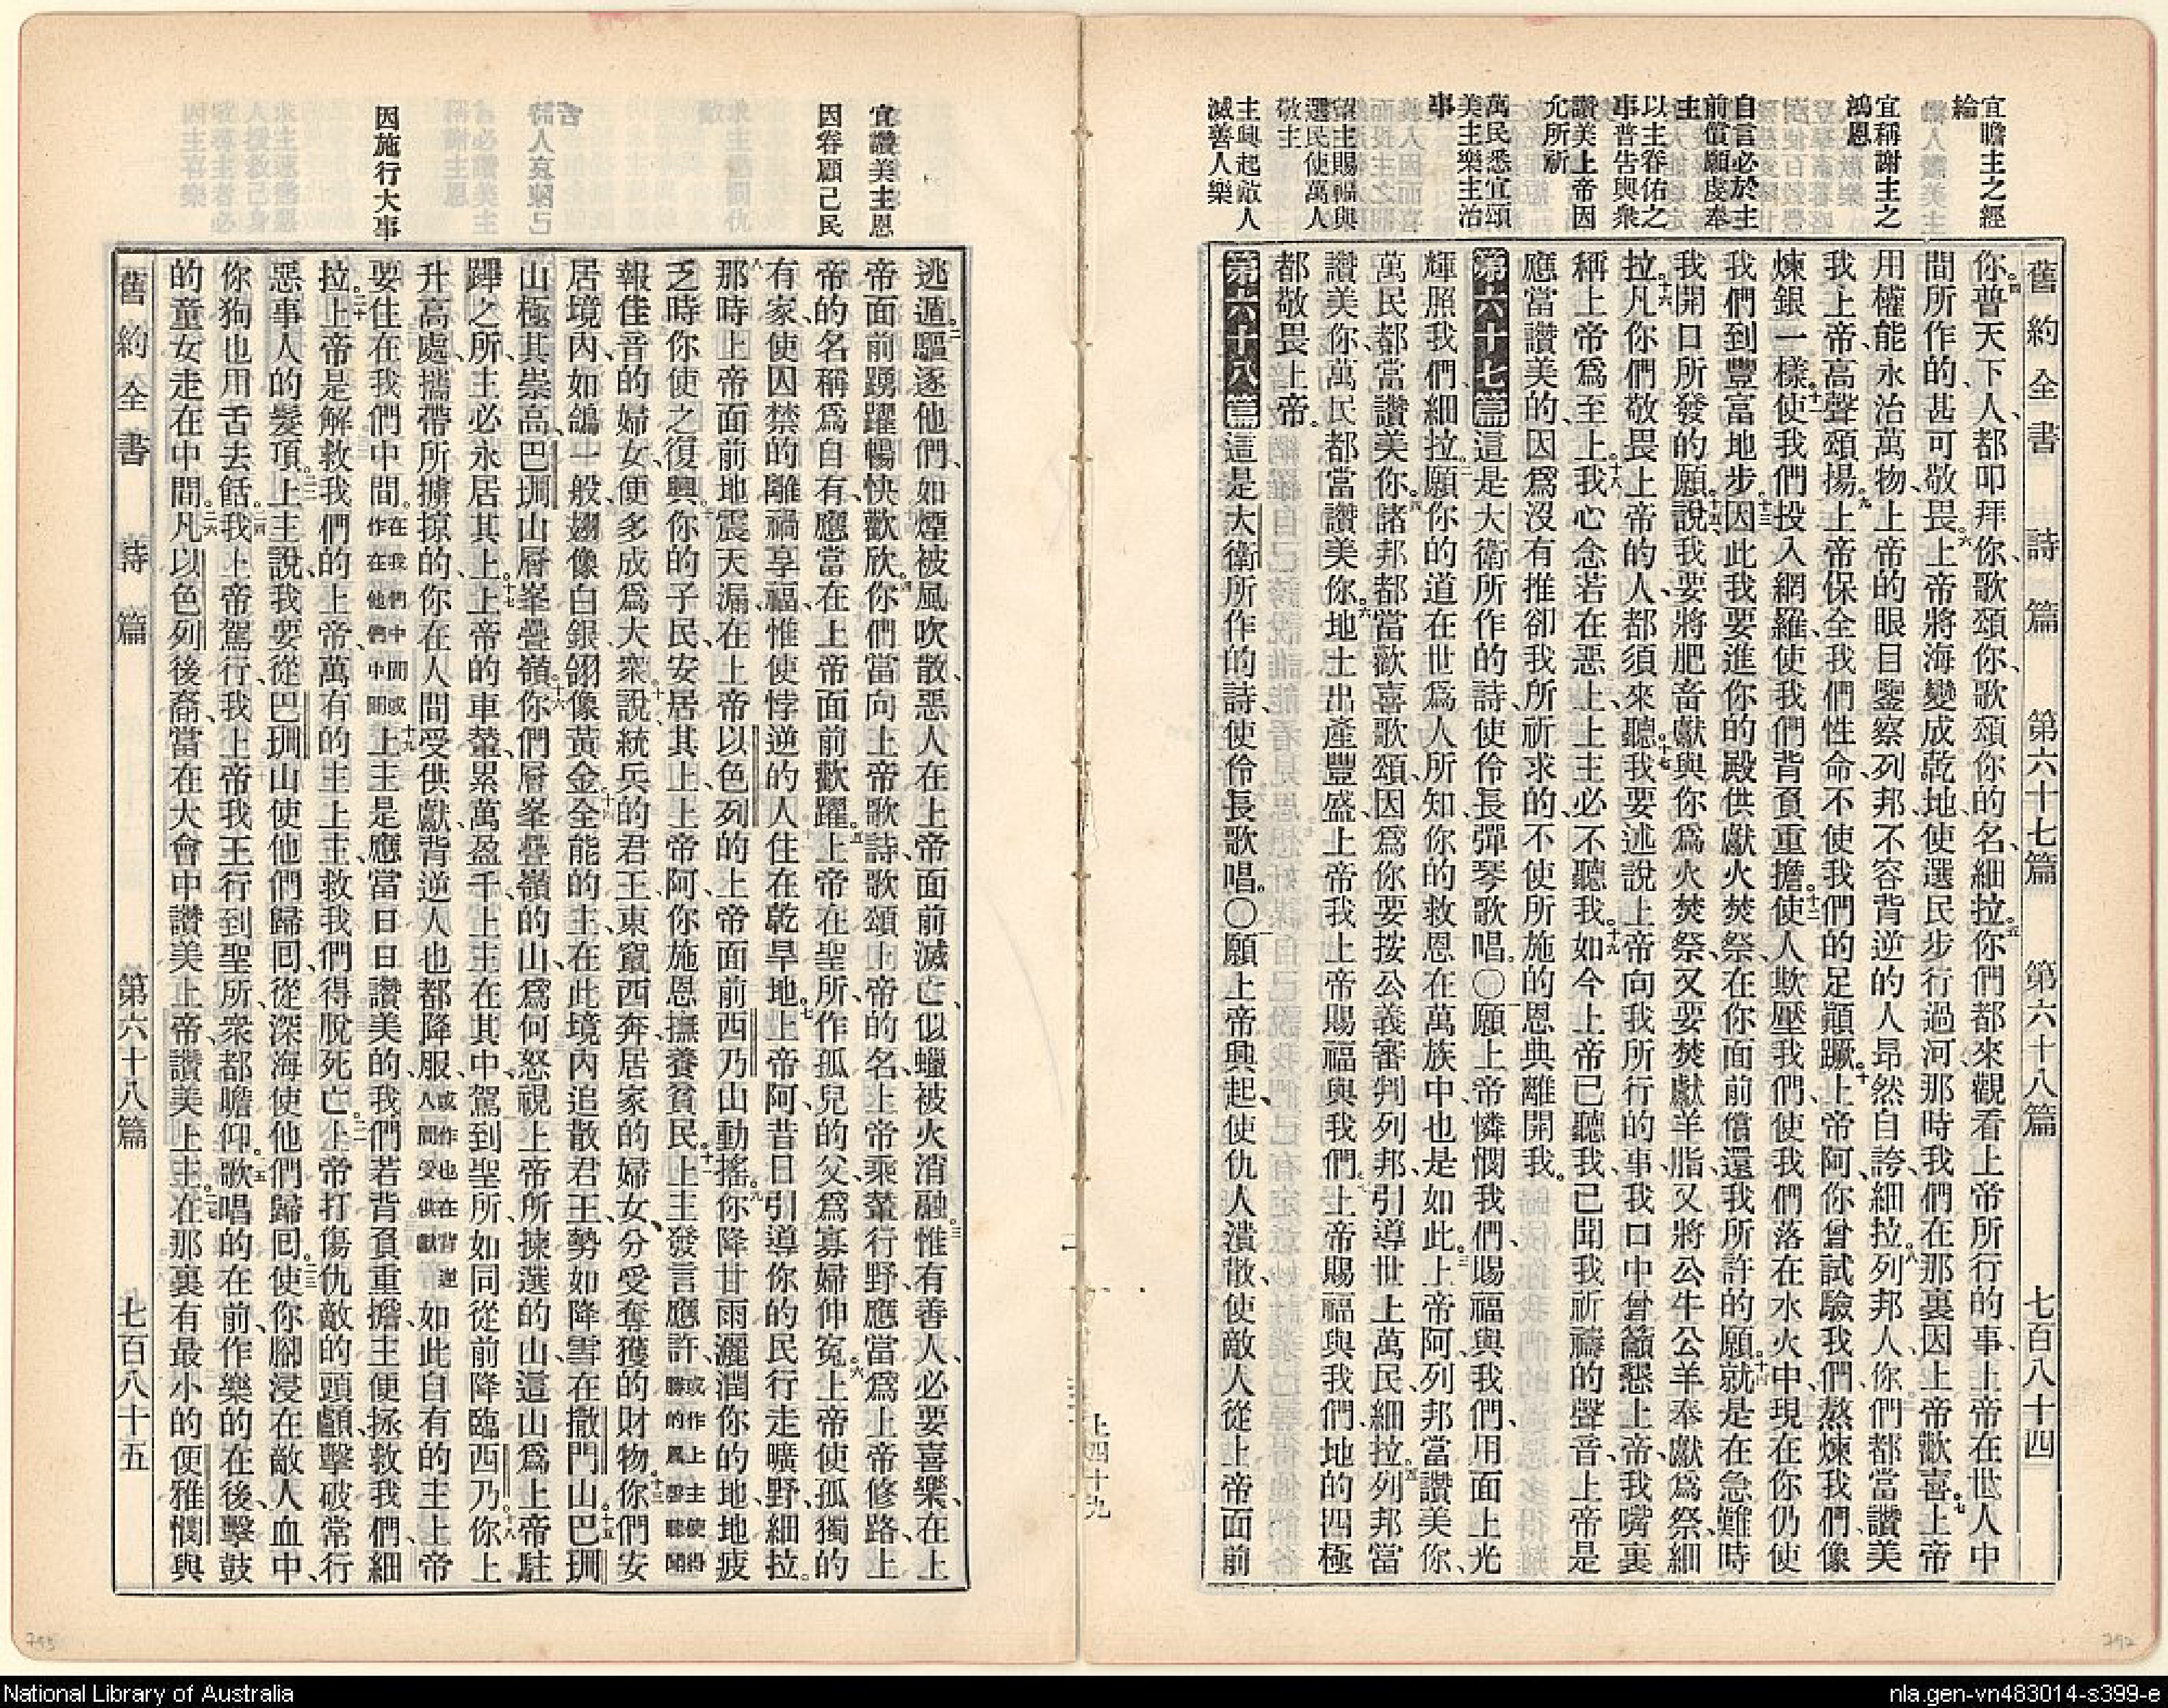 舊約全書 詩篇 第六十七篇 第六十八篇 七百八十四
宜瞻主之經
綸
宜稱謝主之
鴻恩
自言必於主
前償願虔奉
主
以主眷佑之
事普告與衆
讚美上帝因
允所祈
萬民悉宜頌
美主樂主治
事
望主賜福與
選民使萬人
敬主
主興起敵人
滅善人樂
你。四普天下人、都叩拜你、歌頌你、歌頌你的名、細拉。五你們都來觀看上帝所行的事、上帝在世人中
間所作的、甚可敬畏。六上帝將海變成乾地、使選民步行過河、那時我們在那裏因上帝歡喜。七上帝
用權能永治萬物、上帝的眼目鑒察列邦、不容背逆的人昂然自誇、細拉。八列邦人、你們都當讚美
我上帝、高聲頌揚。九上帝保全我們性命、不使我們的足顚蹶。十上帝阿、你曾試驗我們、熬煉我們、像
煉銀一樣。十一使我們投入網羅、使我們背負重擔。十二使人欺壓我們、使我們落在水火中、現在你仍使
我們到豐富地步。十三因此我要進你的殿、供獻火焚祭、在你面前償還我所許的願。十四就是在急難時
我開口所發的願。十五說我要將肥畜獻與你爲火焚祭、又要焚獻羊脂、又將公牛公羊奉獻爲祭、細
拉。十六凡你們敬畏上帝的人、都須來聽、我要述說上帝向我所行的事。十七我口中曾籲懇上帝、我嘴裏
稱上帝爲至上。十八我心念若在惡上、主必不聽我。十九如今上帝已聽我、已聞我祈禱的聲音。上帝是
應當讚美的、因爲沒有推卻我所祈求的、不使所施的恩典離開我。
第六十七篇 這是大衛所作的詩、使伶長彈琴歌唱。〇一願上帝憐憫我們、賜福與我們、用面上光
輝照我們、細拉。二願你的道在世爲人所知、你的救恩在萬族中也是如此。三上帝阿、列邦當讚美你、
萬民都當讚美你。四諸邦都當歡喜歌頌、因爲你要按公義審判列邦、引導世上萬民、細拉。五列邦當
讚美你、萬民都當讚美你。六地土出產豐盛、上帝我上帝賜福與我們。七上帝賜福與我們、地的四極
都敬畏上帝。
第六十八篇 這是大衛所作的詩、使伶長歌唱。〇一願上帝興起、使仇人潰散、使敵人從上帝面前
上四十九
宜讚美主恩
因眷顧己民
因施行大事
逃遁。二驅逐他們、如煙被風吹散、惡人在上帝面前滅亡、似蠟被火消融。三惟有善人、必要喜樂、在上
帝面前踴躍、暢快歡欣。四你們當向上帝歌詩、歌頌上帝的名、上帝乘輦行野、應當爲上帝修路、上
帝的名稱爲自有、應當在上帝面前歡躍。五上帝在聖所、作孤兒的父、爲寡婦伸寃。六上帝使孤獨的
有家、使囚禁的離禍享福、惟使悖逆的人、住在乾旱地。七上帝阿、昔日引導你的民行走曠野、細拉。
八那時上帝面前地震天漏、在上帝以色列的上帝面前、西乃山動搖。九你降甘雨、灑潤你的地、地疲
乏時、你使之復興。你的子民、安居其上、上帝阿、你施恩撫養貧民。十一上主發言應許、或作上主使得勝的凱聲聽聞
報佳音的婦女、便多成爲大衆。說、統兵的君王、東竄西奔、居家的婦女、分受奪獲的財物。十三你們安
居境內、如鴿一般、翅像白銀、翎像黃金。十四全能的主在此境內追散君王、勢如降雪在撒門山。十五巴珊
山極其崇高、巴珊山層峯疊嶺。十六你們層峯疊嶺的山、爲何怒視上帝所揀選的山、這山爲上帝駐
蹕之所、主必永居其上。十七上帝的車輦、累萬盈千、上主在其中、駕到聖所、如同從前降臨西乃。十八你上
升高處、攜帶所擄掠的、你在人間受供獻、背逆人也都降服、或作也在背逆人間受供獻如此自有的主上帝
要住在我們中間。在我們中間或作在他們中間十九上主是應當日日讚美的、我們若背負重擔、主便拯救我們、細
拉。二十上帝是解救我們的上帝、萬有的主上主、救我們得脫死亡。二一上帝打傷仇敵的頭顱、擊破常行
惡事人的髮頂。二二上主說、我要從巴珊山使他們歸回、從深海使他們歸回。二三使你腳浸在敵人血中、
你狗也用舌去餂。二四我上帝駕行、我上帝我王行到聖所、衆都瞻仰。二五歌唱的在前、作樂的在後、擊鼓
的童女走在中間。二六凡以色列後裔、當在大會中讚美上帝、讚美上主。二七在那裏有最小的便雅憫、與
舊約全書 詩篇 第六十八篇 七百八十五
National Library of Australia
nla.gen-vn483014-s399-e